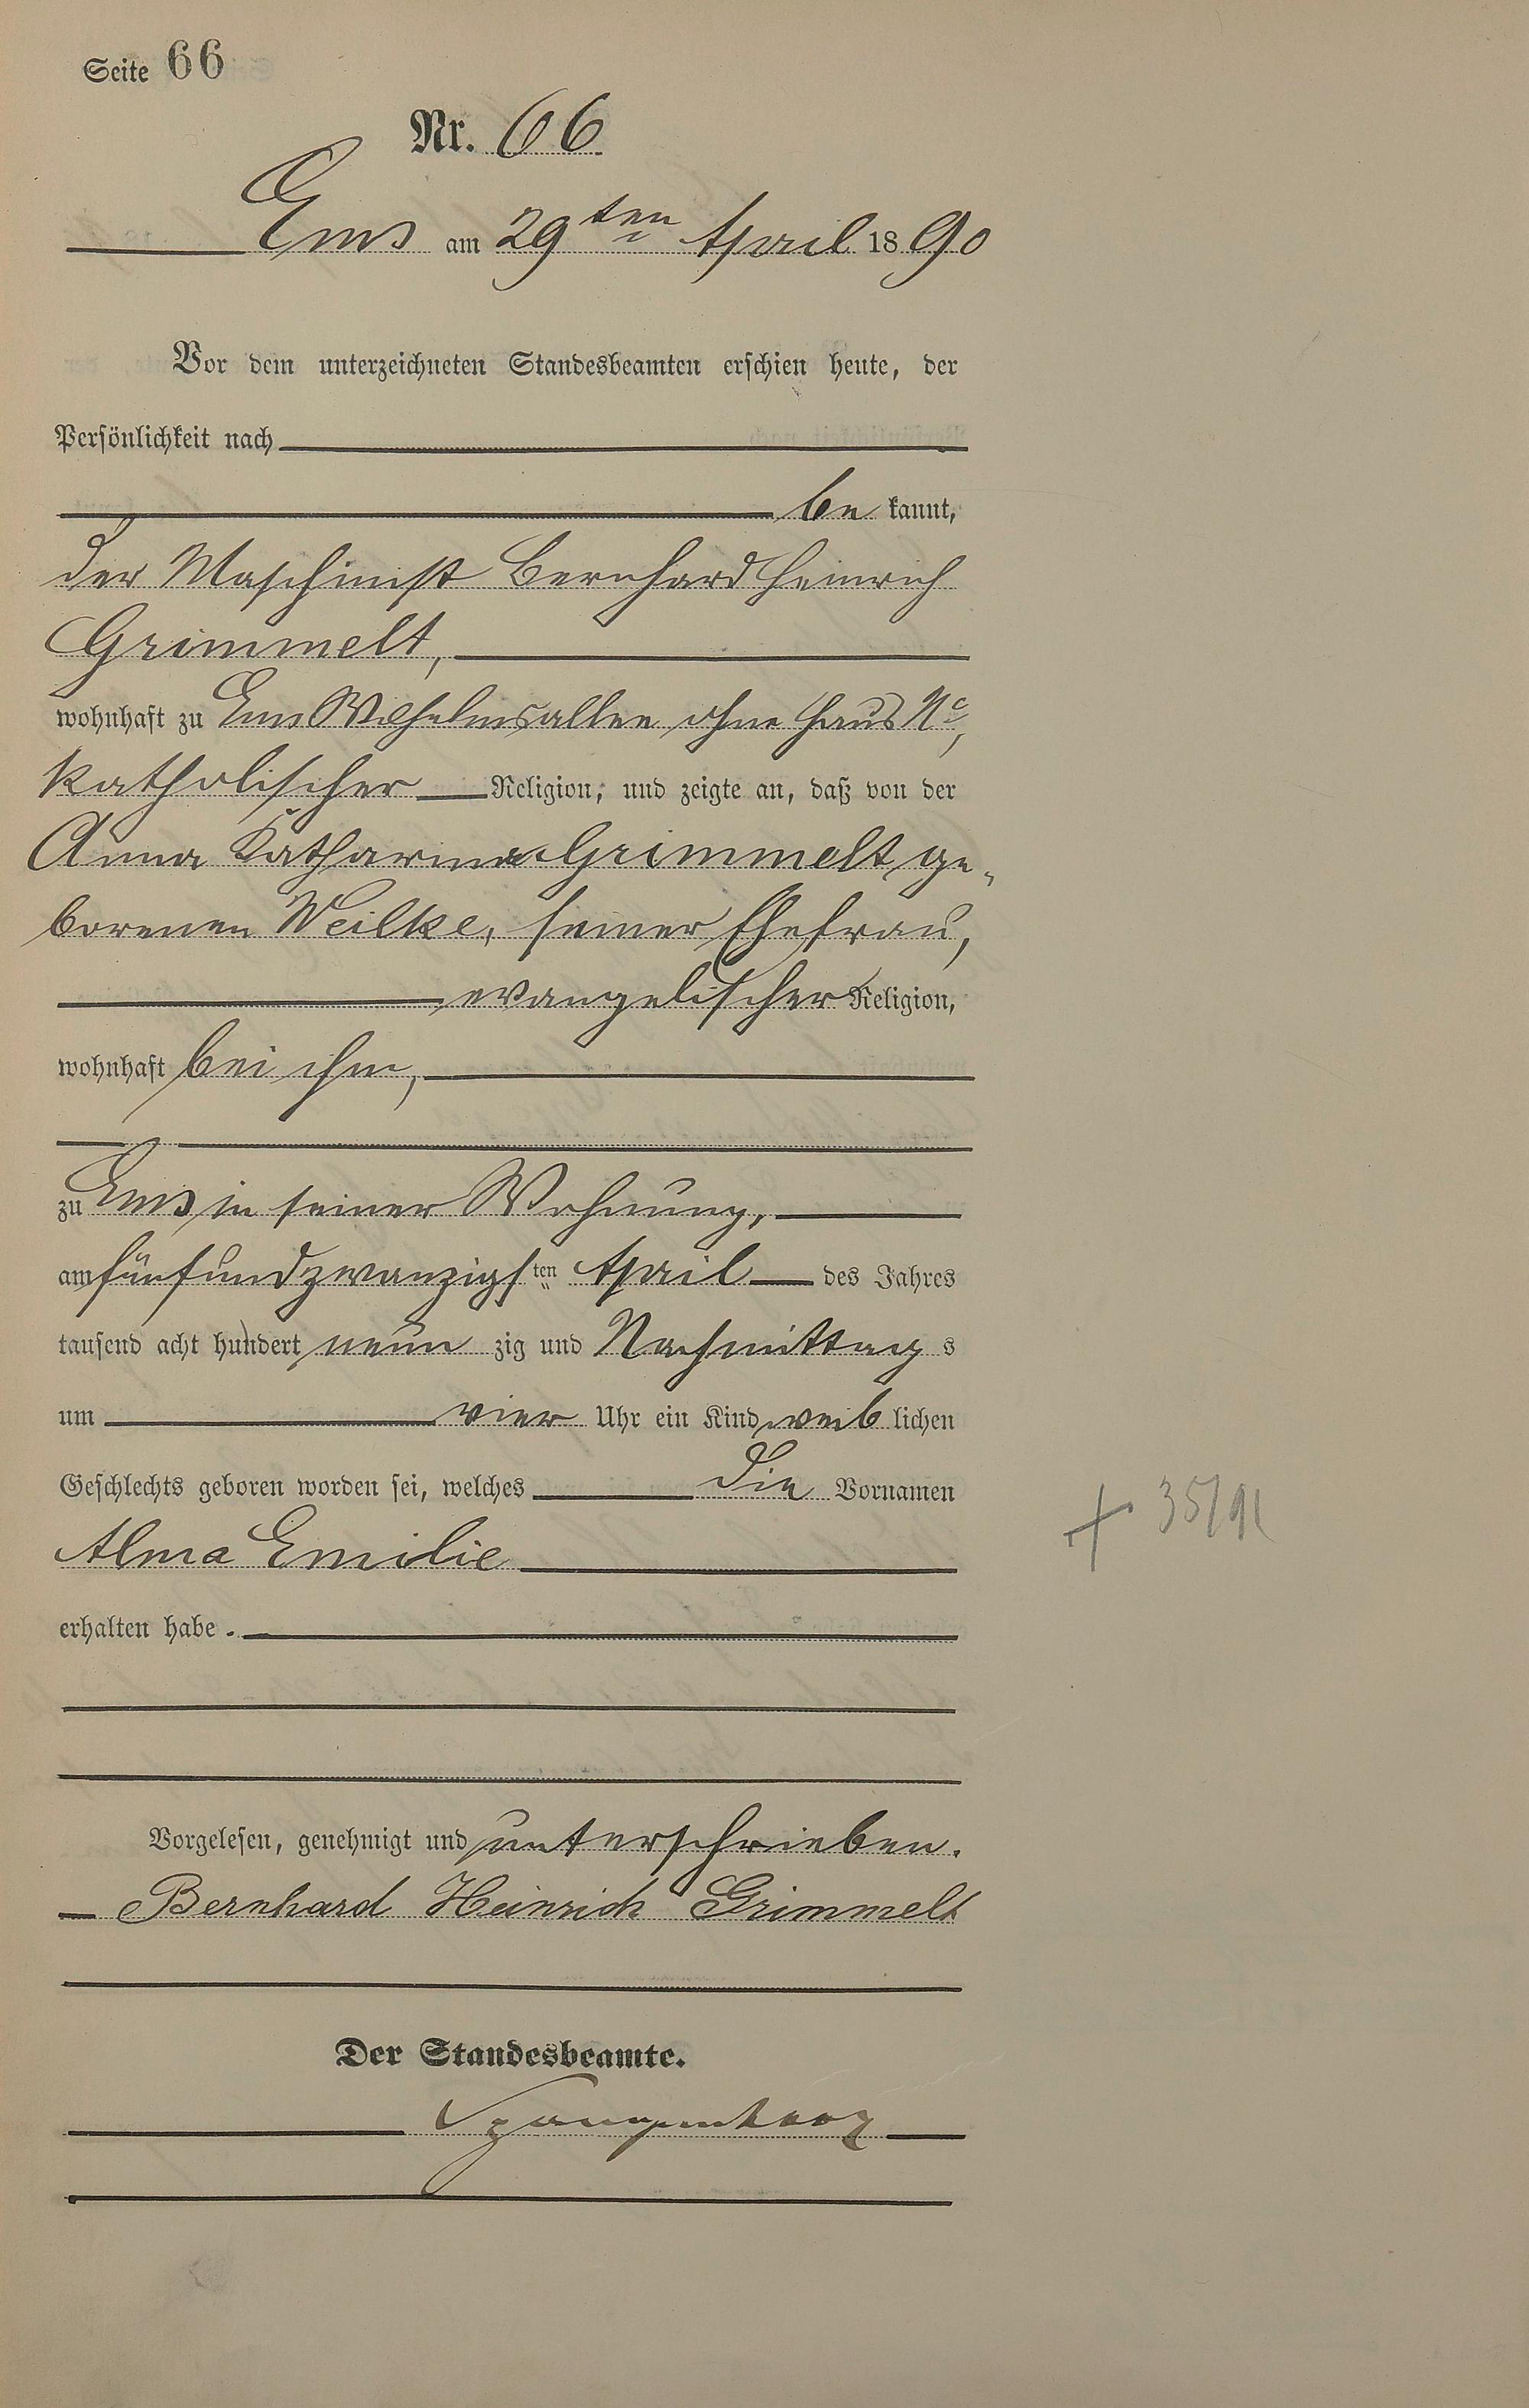 Seite 66
Nr. 66
Ems am 29ten April 1890
Vor dem unterzeichneten Standesbeamten erschien heute, der
Persönlichkeit nach
be kannt,
der Maschinist Bernhard Heinrich
Grimmelt,
wohnhaft zu Ems Wilhelmsallee ohne Haus No,
katholischer Religion, und zeigte an, daß von der
Anna Katharina Grimmelt ge-
borenen Weilke, seiner Ehefrau,
evangelischer Religion,
wohnhaft bei ihm,
zu Ems in seiner Wohnung,
am fünfundzwanzigsten April des Jahres
tausend acht hundert neun zig und Nachmittag s
um vier Uhr ein Kind weib lichen
Geschlechts geboren worden sei, welches die Vornamen
Alma Emilie
+ 35/91
erhalten habe.
Vorgelesen, genehmigt und unterschrieben.
Bernhard Heinrich Grimmelt
Der Standesbeamte.